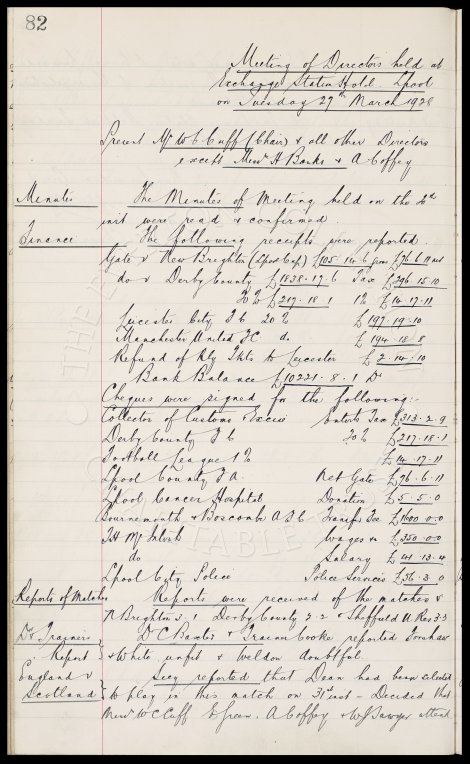 82
Meeting of Directors held at
Exchange Station Hotel. Lpool
on Tuesday 27th March 1928
Present Mr W C Cuff (Chair) & all other Directors
except Messrs H Banks & A Coffey
Minutes The Minutes of Meeting held on the 20th
inst were read & confirmed.
Finance The following receipts were reported.
Gate v New Brighton (Lpool Cup) £105.14.6 gross £76.6.11 net
do v Derby County £1838.17.6 Tax £296.15.10
20% £217.18.1 1% £14.17.11
Leicester City F C 20% £197.19.10
Manchester United FC do £194.18.8
Refund of Rly Tkts to Leicester £2.14.10
Bank Balance £10221.8.1 Dr
Cheques were signed for the following:-
Collector of Customs Excise Enterts Tax £313.2.9
Derby County F C 20% £217.18.1
Football League 1% £14.17.11
Lpool County F A. Net Gate £76.6.11
Lpool Cancer Hospital Donation £5.5.0
Bournemouth & Boscombe A F C Transfer Fee £1600.0.0
T H McIntosh Wages &c £250.0.0
do Salary £41.13.4
Lpool City Police Police Services £36.3.0
Reports of Matches Reports were received of the matches v
N Brighton Derby County 2.2 & Sheffield U Res 3.3
Dr & Trainers Dr C Baxter & Trainer Cooke reported Kershaw
Report & White unfit & Weldon doubtful.
England v Secy reported that Dean had been selected
Scotland to play in this match on 31st inst - Decided that
Messrs W C Cuff E Green. A Coffey & W J Sawyer attend